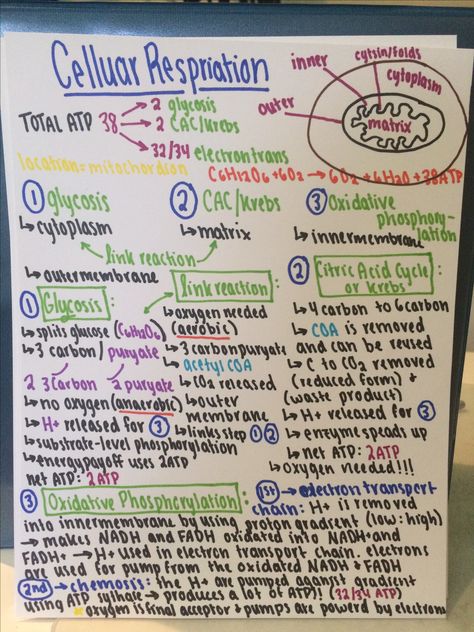 Celluar Respriation
inner
cytsin/folds
cytoplasm
outer
matrix
TOTAL ATP 38
2 glycosis
2 CAC/Krebs
32/34 electrontrans
location = mitochordion
C6H12O6+6O2 → 6O2+6H2O+38ATP
① glycosis
↳ cytoplasm
② CAC/Krebs
↳ matrix
③ Oxidative
phosphory-
lation
↳ innermembrane
link reaction
↳ outermembrane
① Glycosis:
↳ splits glucose (C6H12O6)
↳ 3 carbon/puryate
2 3carbon 2 puryate
↳ no oxygen (anaerobic)
↳ H+ released for ③
↳ substrate-level phosphorylation
↳ energy payoff uses 2ATP
net ATP: 2ATP
link reaction:
↳ oxygen needed
(aerobic)
↳ 3 carbon puryate
↳ acetyl COA
↳ CO2 released
↳ outer
membrane
↳ links step ① ②
② Citric Acid Cycle
or Krebs:
↳ 4 carbon to 6 carbon
↳ COA is removed
and can be reused
↳ C to CO2 removed
(reduced form) +
(waste product)
↳ H+ released for ③
↳ enzyme speads up
↳ net ATP: 2ATP
↳ oxygen needed!!!
③ Oxidative Phosphorylation: 1st → electron transport
chain: H+ is removed
into innermembrane by using proton gradient (low:high)
→ makes NADH and FADH oxidated into NADH+and
FADH+ → H+ used in electron transport chain. electrons
are used for pump from the oxidated NADH & FADH
2nd → chemosis: the H+ are pumped against gradient
using ATP sythase → produces a lot of ATP!! (32/34 ATP)
oxygen is final acceptor & pumps are powerd by electrons